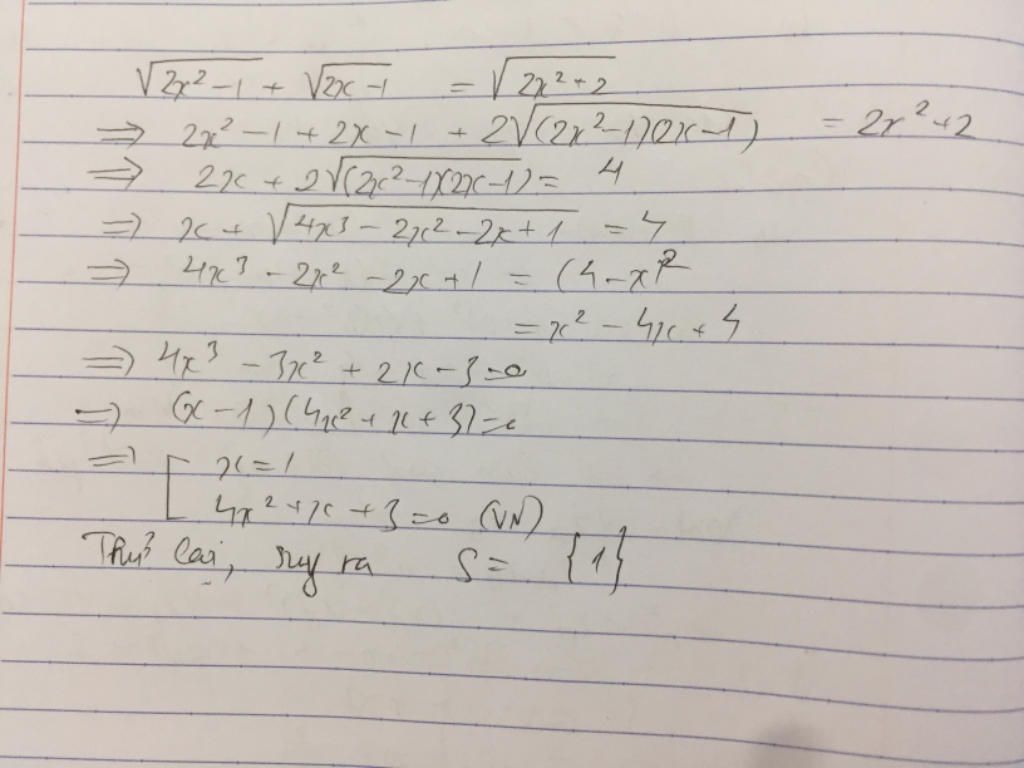 √(2x² − 1) + √(2x − 1) = √(2x² + 2)
⇒ 2x² − 1 + 2x − 1 + 2√((2x² − 1)(2x − 1)) = 2x² + 2
⇒ 2x + 2√((2x² − 1)(2x − 1)) = 4
⇒ x + √(4x³ − 2x² − 2x + 1) = 4
⇒ 4x³ − 2x² − 2x + 1 = (4 − x)²
= x² − 4x + 4
⇒ 4x³ − 3x² + 2x − 3 = 0
⇒ (x − 1)(4x² + x + 3) = 0
⇒ [ x = 1
4x² + x + 3 = 0 (VN)
Thử lại, suy ra S = {1}